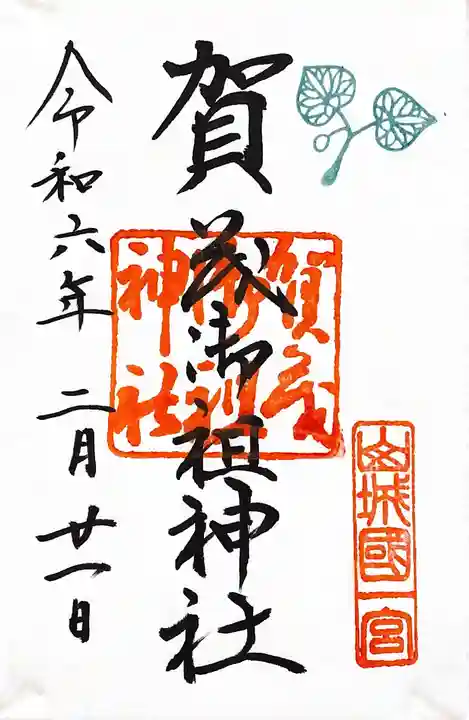 山城國一宮
賀茂御祖神社
賀茂御祖神社
令和六年 二月廿一日